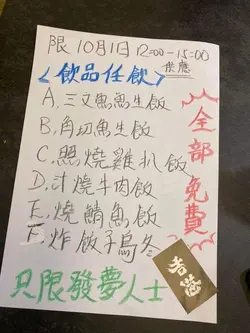 限10月1日 12:00-15:00
供應
<飲品任飲>
A.三文魚魚生飯
B.角切魚生飯
C.照燒雞扒飯
D.汁燒牛肉飯
E.燒鯖魚飯
F.炸餃子烏冬
全部免費
只限發夢人士